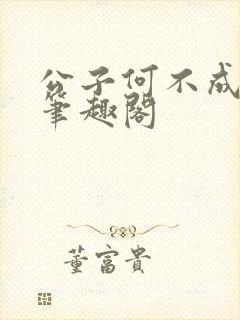 公子何不成
笔趣阁
董富贵